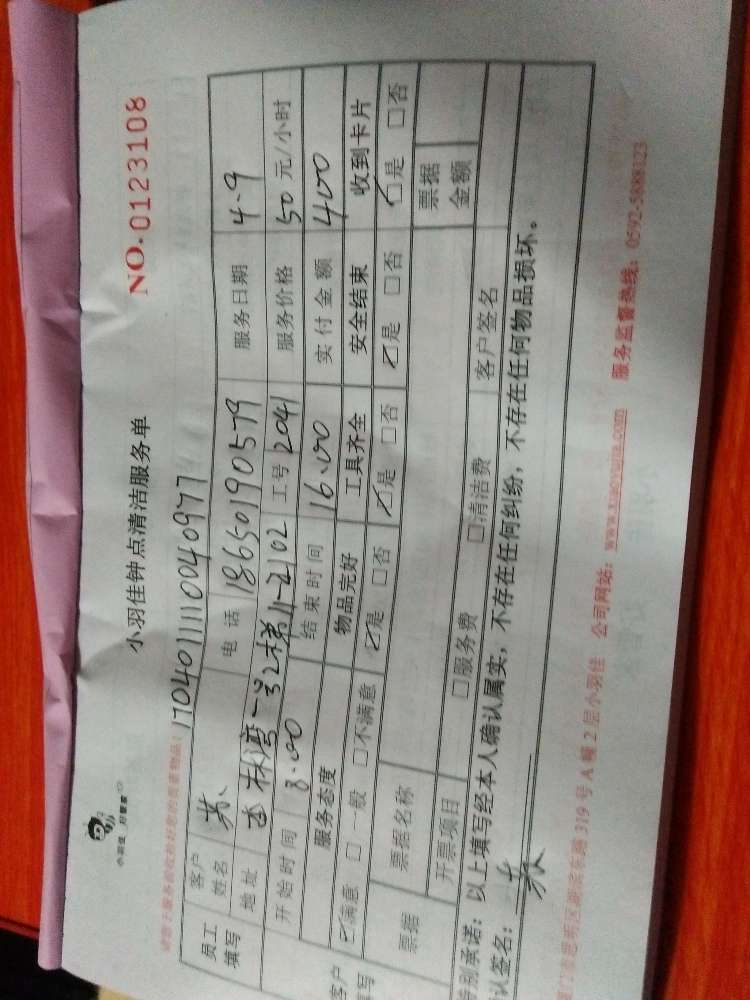 小羽佳 好管家
小羽佳钟点清洁服务单
NO.0123108
请您于服务前收检好您的贵重物品！
17040111110040977
员工填写 客户姓名 苏 电话 18650190579 服务日期 4.9
地址 杏林湾一号2梯11-2102 工号 2041 服务价格 50 元/小时
开始时间 8.00 结束时间 16.00 实付金额 400
客户填写 服务态度 物品完好 工具齐全 安全结束 收到卡片
☑满意 □一般 □不满意 ☑是 □否 ☑是 □否 ☑是 □否 ☑是 □否
票据 票据名称 票据金额
开票项目 □服务费 □清洁费 客户签名
特别承诺：以上填写经本人确认属实，不存在任何纠纷，不存在任何物品损坏。
认签名：苏
思明区湖滨东路 319 号 A 幢 2 层小羽佳 公司网站： 服务监督热线：0592-5888123